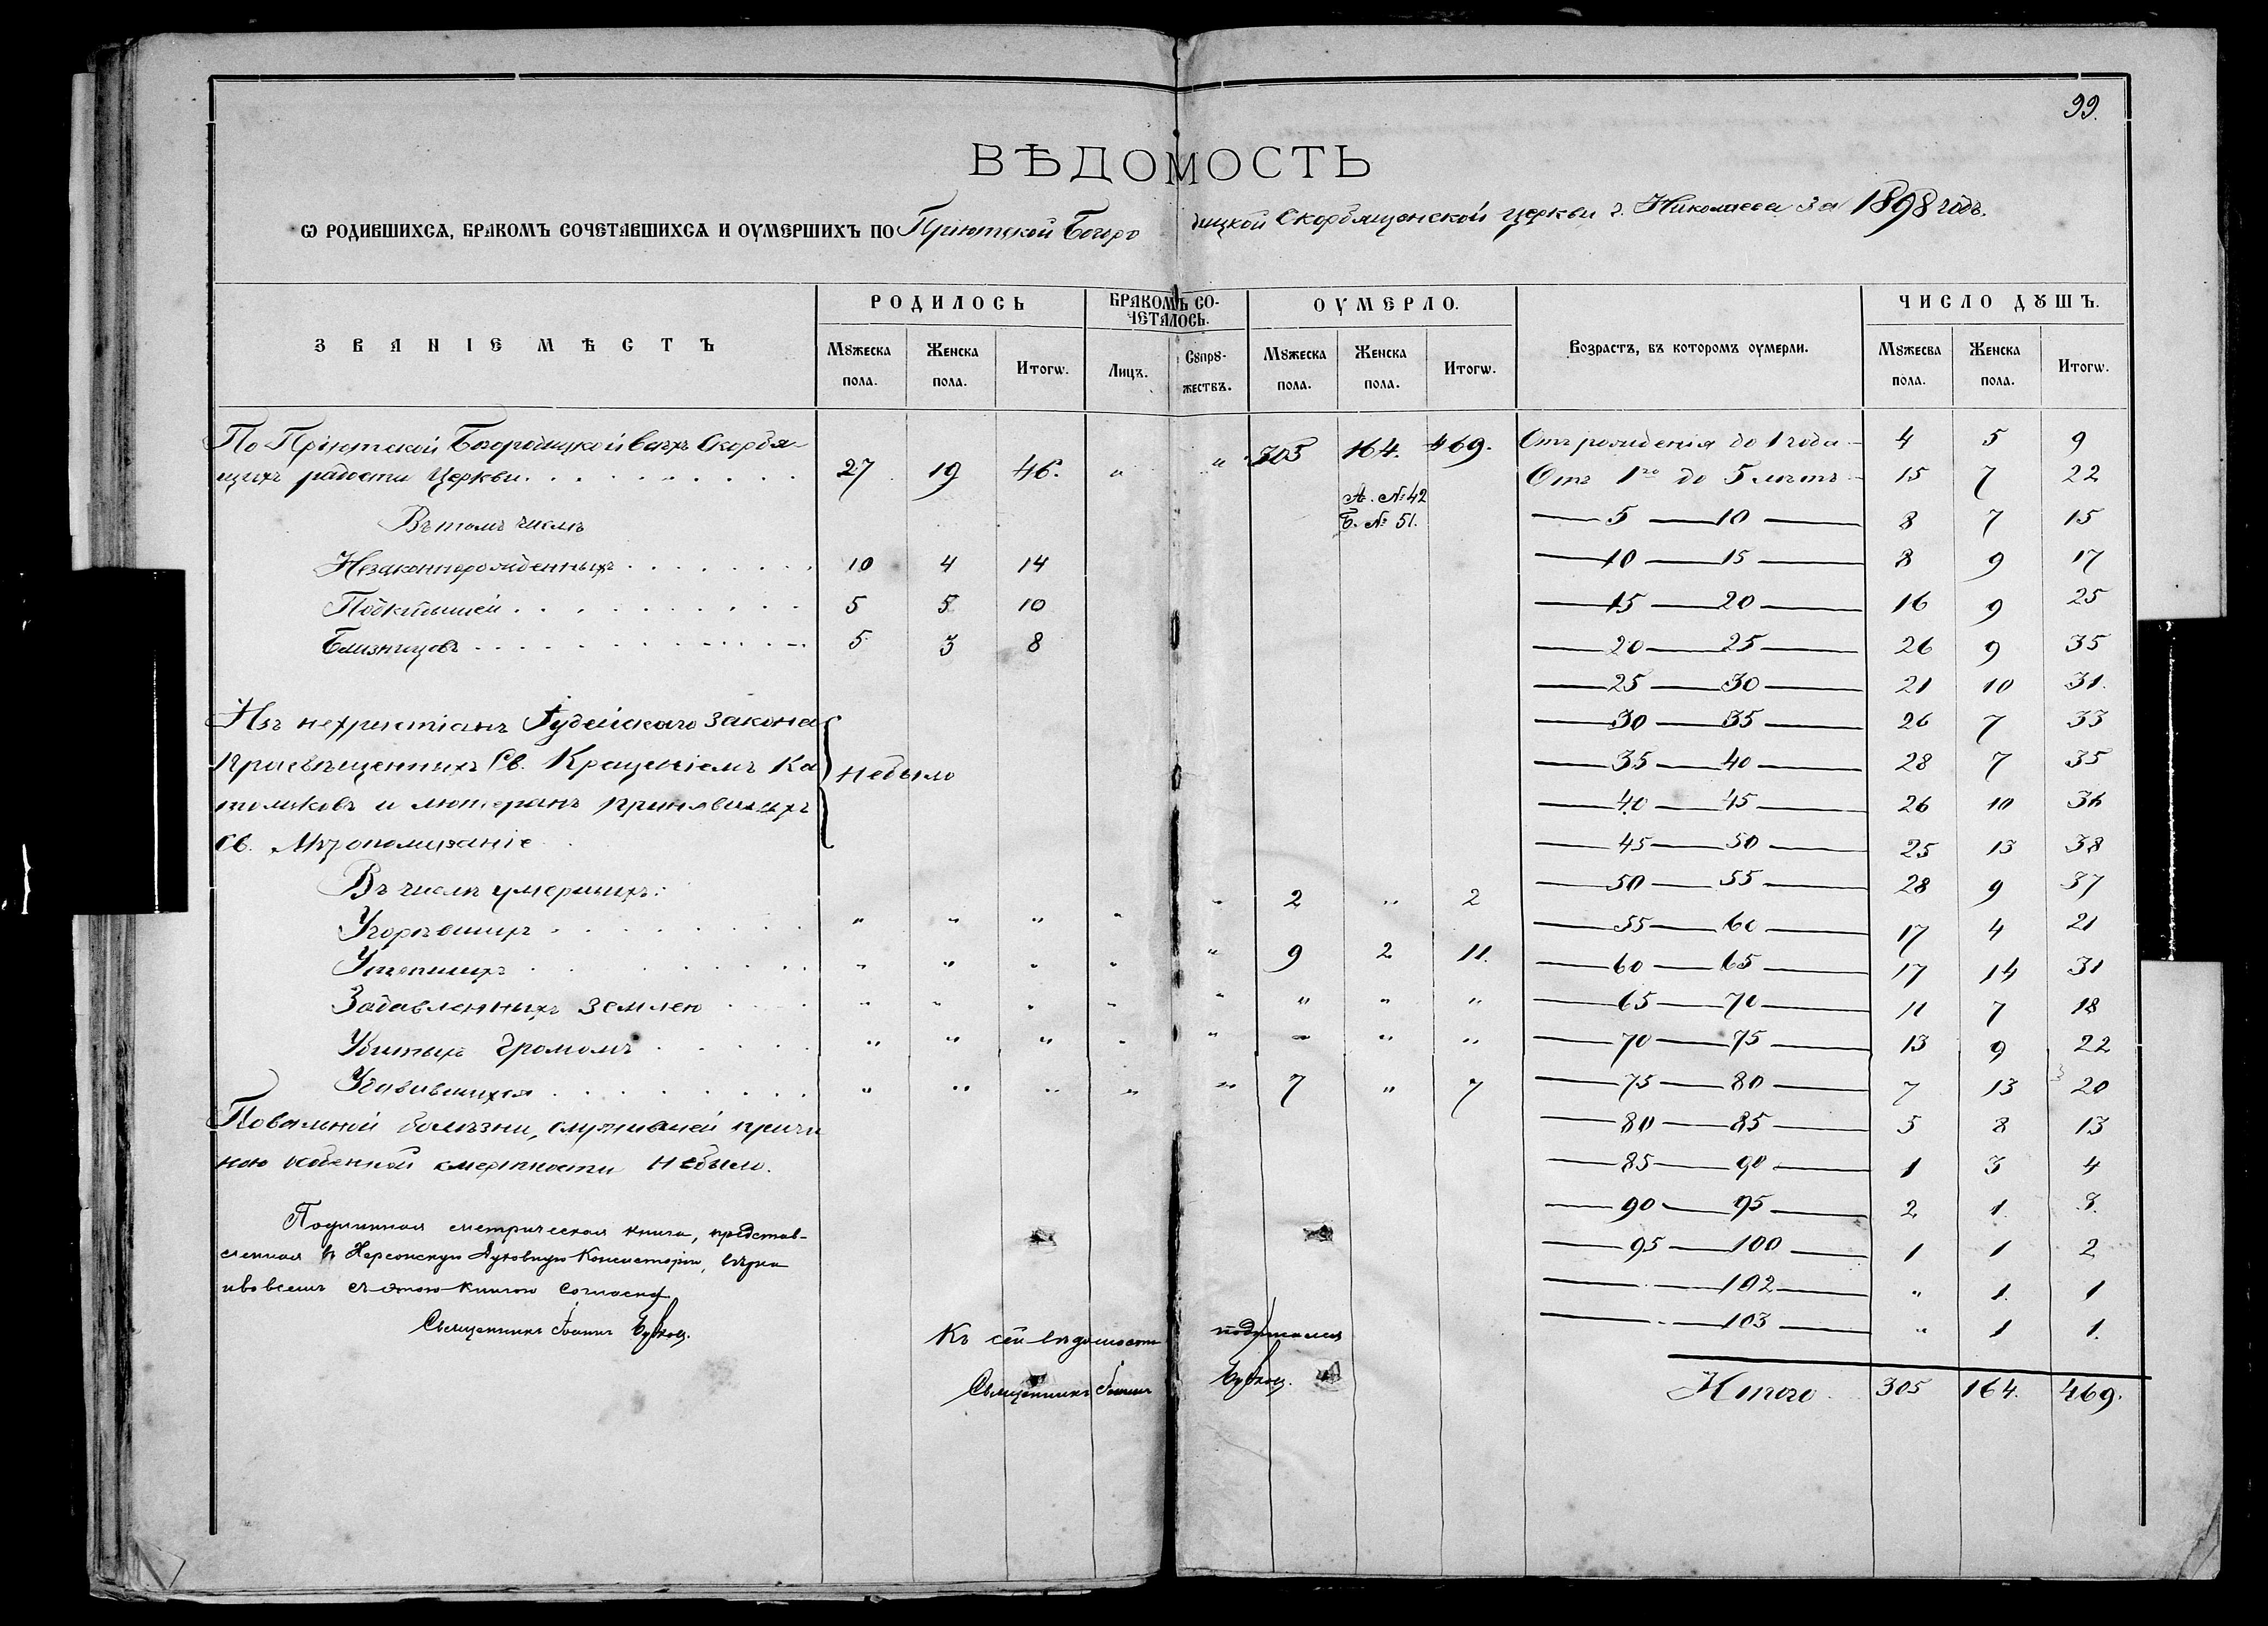 99.
ВѢДОМОСТЬ
Ѡ РОДИВШИХСѦ, БРАКОМЪ СОЧЕТАВШИХСѦ И ОУМЕРШИХЪ ПО Пріютской Богородицкой Скорбященской церкви г. Николаева за 1898 годъ.
ЗВАНІЕ МѢСТЪ
РОДИЛОСЬ
БРАКОМЪ СОЧЕТАЛОСЬ.
ОУМЕРЛО.
Возрастъ, въ которомъ оумерли.
ЧИСЛО ДꙊШЪ.
Мꙋжеска пола. Женска пола. Итогѡ. Лицъ. Сꙋпрꙋжествъ. Мꙋжеска пола. Женска пола. Итогѡ. Мꙋжесва пола. Женска пола. Итогѡ.
По Пріютской Богородицкой всѣхъ Скорбя-
щихъ радости Церкви 27 19 46. " " 305 164. 469.
А. № 42
Б. № 51.
Въ томъ числѣ
Незаконнорожденныхъ 10 4 14
Подкидышей 5 5 10
Близнецовъ 5 3 8
Изъ нехристіанъ Іудейскаго закона
просвѣщенныхъ Св. Крещеніемъ Ка
толиковъ и лютеранъ принявшихъ
св. Мѵропомазаніе
небыло
Въ числѣ умершихъ:
Угорѣвшихъ " " " " " 2 " 2
Утопшихъ " " " " " 9 2 11.
Задавленныхъ землею " " " " " " " "
Убитыхъ громомъ " " " " " " " "
Удавившихся " " " " " 7 " 7
Повальной болѣзни, служившей причи
ною особенной смертности небыло.
Подлинная метрическая книга, представ-
ленная въ Херсонскую Духовную Консисторію, вѣрна
и во всемъ съ этою книгою согласна
Священникъ Іоаннъ
Къ сей вѣдомости подписался
Священникъ Іоаннъ
Отъ рожденія до 1 года 4 5 9
Отъ 1го до 5 лѣтъ 15 7 22
— 5 — 10 — 8 7 15
— 10 — 15 — 8 9 17
— 15 — 20 — 16 9 25
— 20 — 25 — 26 9 35
— 25 — 30 — 21 10 31.
— 30 — 35 — 26 7 33
— 35 — 40 — 28 7 35
— 40 — 45 — 26 10 36
— 45 — 50 — 25 13 38
— 50 — 55 — 28 9 37
— 55 — 60 — 17 4 21
— 60 — 65 — 17 14 31
— 65 — 70 — 11 7 18
— 70 — 75 — 13 9 22
— 75 — 80 — 7 13 20
— 80 — 85 — 5 8 13
— 85 — 90 — 1 3 4
— 90 — 95 — 2 1. 3.
— 95 — 100 — 1 1 2
— 102 — " 1. 1
— 103 — " 1 1.
Итого 305 164. 469.